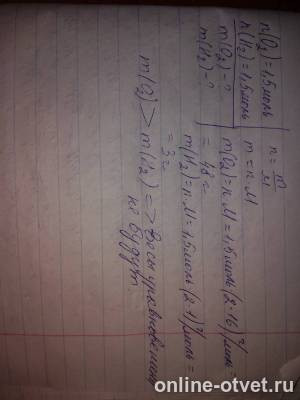 n(O₂)=1,5моль
n(H₂)=1,5моль
m(O₂)-?
m(H₂)-?
n=m/M
m=n·M
m(O₂)=n·M=1,5моль(2·16)г/моль=
=48г
m(H₂)=n·M=1,5моль(2·1)г/моль=
=3г
m(O₂)>m(H₂)=>Весы уравновешены
не будут
online-otvet.ru